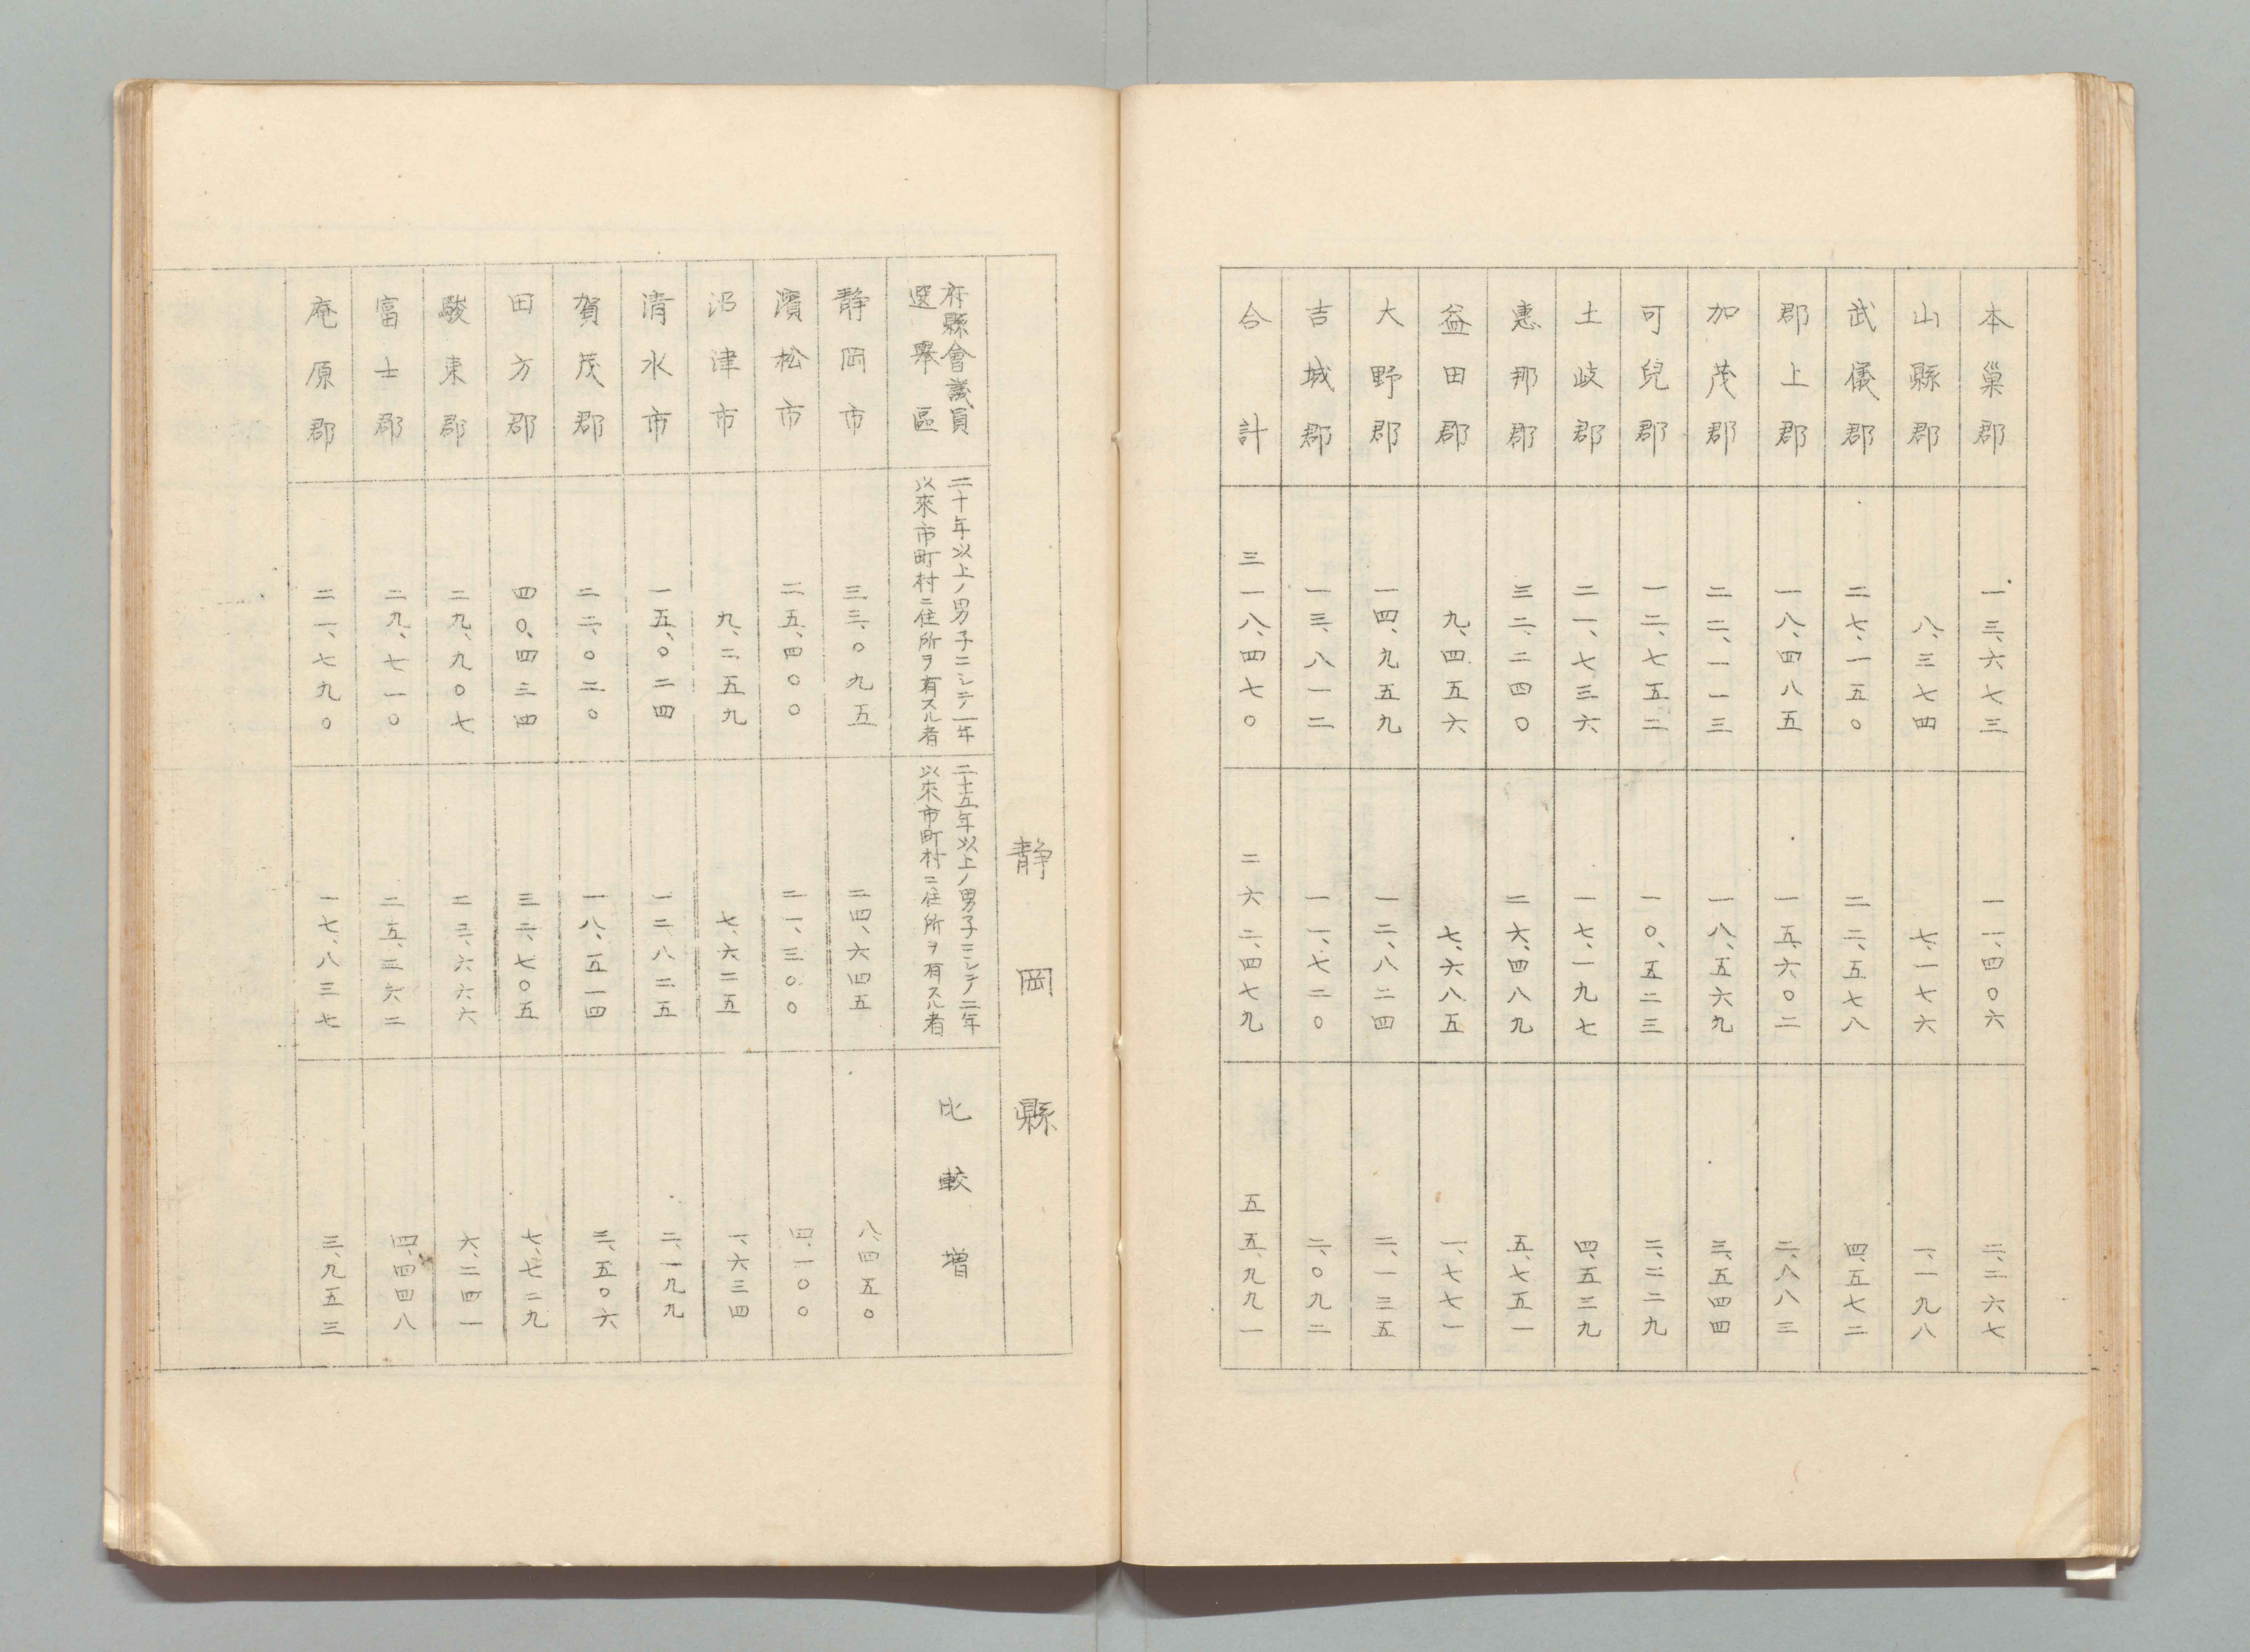 本巣郡 一三、六七三 一一、四〇六 二、二六七
山縣郡 八、三七四 七、一七六 一、一九八
武儀郡 二七、一五〇 二二、五七八 四、五七二
郡上郡 一八、四八五 一五、六〇二 二、八八三
加茂郡 二二、一一三 一八、五六九 三、五四四
可兒郡 一二、七五二 一〇、五二三 二、二二九
土岐郡 二一、七三六 一七、一九七 四、五三九
惠那郡 三二、二四〇 二六、四八九 五、七五一
益田郡 九、四五六 七、六八五 一、七七一
大野郡 一四、九五九 一二、八二四 二、一三五
吉城郡 一三、八一二 一一、七二〇 二、〇九二
合計 三一八、四七〇 二六二、四七九 五五、九九一
静岡縣
府縣會議員
選擧區
二十年以上ノ男子ニシテ一年
以來市町村ニ住所ヲ有スル者
二十五年以上ノ男子ニシテ二年
以來市町村ニ住所ヲ有スル者
比較増
静岡市 三三、〇九五 二四、六四五 八、四五〇
濱松市 二五、四〇〇 二一、三〇〇 四、一〇〇
沼津市 九、二五九 七、六二五 一、六三四
清水市 一五、〇二四 一二、八二五 二、一九九
賀茂郡 二二、〇二〇 一八、五一四 三、五〇六
田方郡 四〇、四三四 三二、七〇五 七、七二九
駿東郡 二九、九〇七 二三、六六六 六、二四一
富士郡 二九、七一〇 二五、二六二 四、四四八
庵原郡 二一、七九〇 一七、八三七 三、九五三